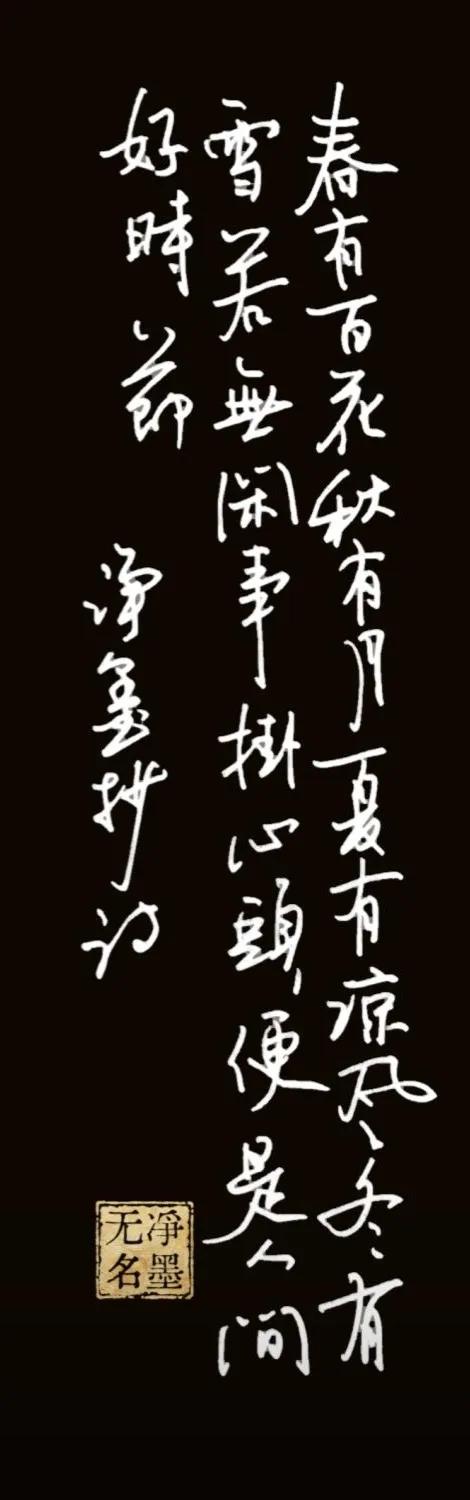 春有百花秋有月夏有凉风冬有
雪若無闲事掛心頭便是人间
好時節
净墨抄诗
净墨
无名